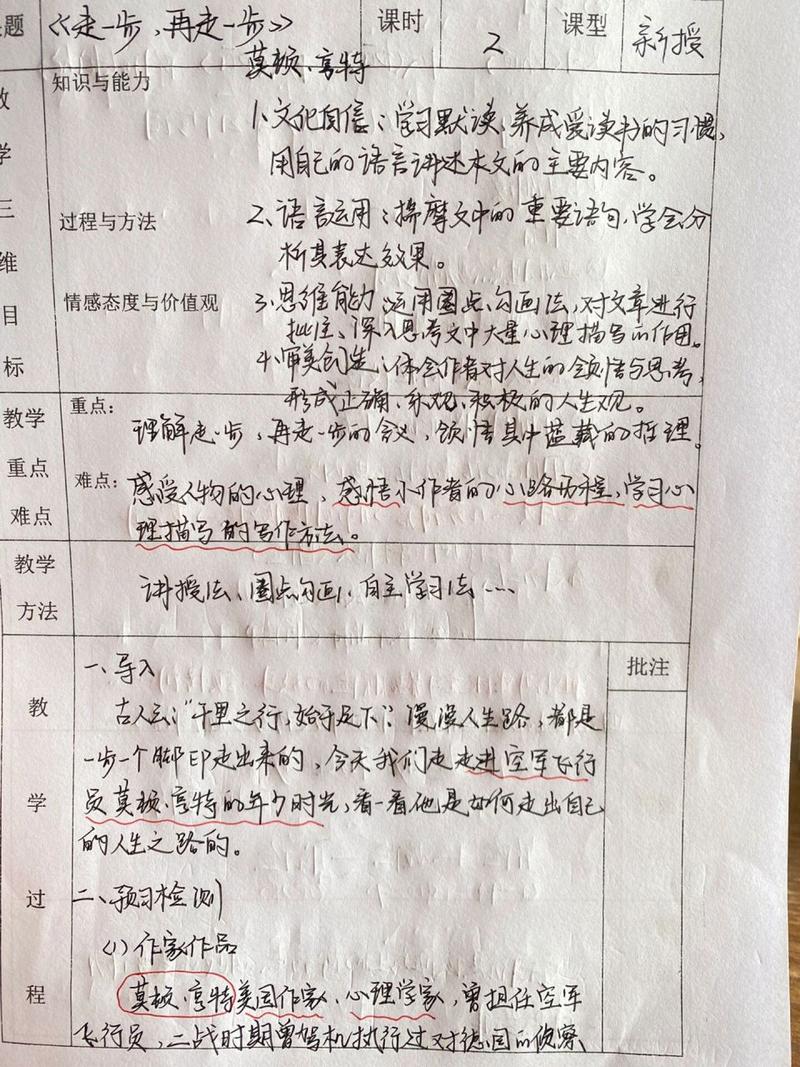 题 《走一步,再走一步》 课时 2 课型 新授
莫顿·亨特
教学三维目标
知识与能力
1、文化自信:学习默读、养成爱读书的习惯,
用自己的语言讲述本文的主要内容。
过程与方法
2、语言运用:揣摩文中的重要语句,学会分
析其表达效果。
情感态度与价值观
3、思维能力:运用圈点、勾画法,对文章进行
批注、深入思考文中大量心理描写的作用。
4、审美创造:体会作者对人生的领悟与思考,
形成正确、乐观、积极的人生观。
教学重点难点
重点:
理解走一步,再走一步的含义,领悟其中蕴藏的哲理。
难点:
感受人物的心理,感悟小作者的心路历程,学习心
理描写的写作方法。
教学方法
讲授法、圈点勾画、自主学习法…
教学过程
批注
一、导入
古人云:“千里之行,始于足下”:漫漫人生路,都是
一步一个脚印走出来的,今天我们走走进空军飞行
员莫顿·亨特的年少时光,看一看他是如何走出自己
的人生之路的。
二、预习检测
(1)作家作品
莫顿·亨特美国作家、心理学家,曾担任空军
飞行员,二战时期曾驾机执行过对德国的侦察